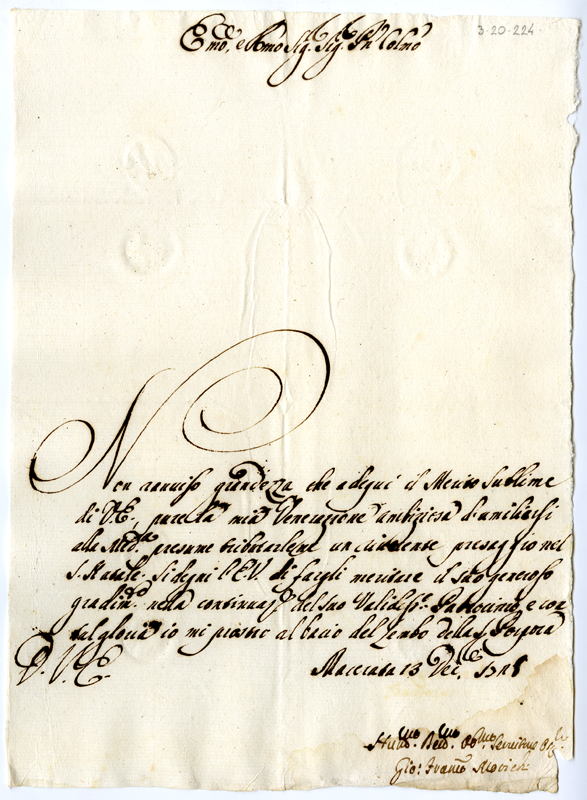 3-20-224
Emo, e Rmo Sig. Sig. Pn Colmo
Non ravviso grandezza che adegui il Merito Sublime
di V.E., pure la mia Venerazione ambiziosa d'umiliarsi
alla Med.ma presume tributarlene un presaggio nel
S. Natale. Si degni l'E.V. di fargli meritare il suo generoso
gradim.to nella continuaz.e del suo Validiss.o Patrocinio, e con
tal gloria io mi prostro al bacio del lembo della S. Porpora
D. V. E.
Macerata 13 Dec.
Humo. Devmo. Obmo Servitore
Gio: Franco